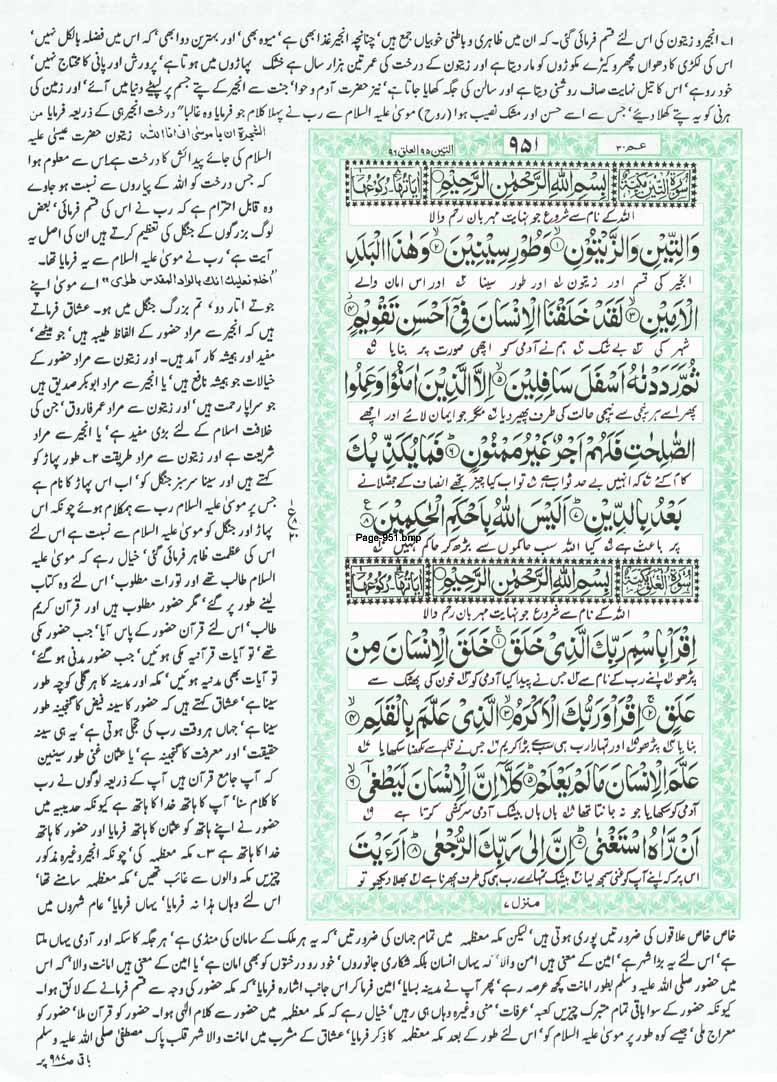 ۱؎ انجیر و زیتون کی اس لئے قسم فرمائی گئی۔ کہ ان میں ظاہری و باطنی خوبیاں جمع ہیں‘ چنانچہ انجیر غذا بھی ہے‘ میوہ بھی‘ اور بہترین دوا بھی‘ کہ اس میں فضلہ بالکل نہیں‘
اس کی لکڑی کا دھواں مچھر و کیڑے مکوڑوں کو مار دیتا ہے اور زیتون کے درخت کی عمر تین ہزار سال ہے خشک پہاڑوں میں ہوتا ہے‘ پرورش اور پانی کا محتاج نہیں‘
خود رو ہے‘ اس کا تیل نہایت صاف روشنی دیتا ہے اور سالن کی جگہ کھایا جاتا ہے‘ نیز حضرت آدم و حوا‘ جنت سے انجیر کے پتے جسم پر لپیٹے دنیا میں آئے‘ اور زمین کی
ہرنی کو یہ پتے کھلا دیئے‘ جس سے اسے حسن اور مشک نصیب ہوا (روح) موسیٰ علیہ السلام سے رب نے پہلا کلام جو فرمایا وہ غالبا" درخت انجیر ہی کے ذریعہ فرمایا من
الشجرۃ ان یا موسی انی انا اللہ زیتون حضرت عیسیٰ علیہ
السلام کی جائے پیدائش کا درخت ہے اس سے معلوم ہوا
کہ جس درخت کو اللہ کے پیاروں سے نسبت ہو جاوے
وہ قابل احترام ہے کہ رب نے اس کی قسم فرمائی‘ بعض
لوگ بزرگوں کے جنگل کی تعظیم کرتے ہیں ان کی اصل یہ
آیت ہے‘ رب نے موسیٰ علیہ السلام سے یہ فرمایا تھا۔
"اخلع نعلیک انک بالواد المقدس طوی" اے موسیٰ اپنے
جوتے اتار دو‘ تم بزرگ جنگل میں ہو۔ عشاق فرماتے
ہیں کہ انجیر سے مراد حضور کے الفاظ طیبہ ہیں‘ جو میٹھے‘
مفید اور ہمیشہ کار آمد ہیں۔ اور زیتون سے مراد حضور کے
خیالات جو ہمیشہ نافع ہیں‘ یا انجیر سے مراد ابوبکر صدیق ہیں
جو سراپا رحمت ہیں‘ اور زیتون سے مراد عمر فاروق‘ جن کی
خلافت اسلام کے لئے بڑی مفید ہے‘ یا انجیر سے مراد
شریعت ہے اور زیتون سے مراد طریقت ۲؎ طور پہاڑ کو
کہتے ہیں اور سینا سرسبز جنگل کو‘ اب اس پہاڑ کا نام ہے
جس پر موسیٰ علیہ السلام رب سے ہمکلام ہوئے چونکہ اس
پہاڑ اور جنگل کو موسیٰ علیہ السلام سے نسبت ہے اس لئے
اس کی عظمت ظاہر فرمائی گئی‘ خیال رہے کہ موسیٰ علیہ
السلام طالب تھے اور تورات مطلوب‘ اس لئے وہ کتاب
لینے طور پر گئے‘ مگر حضور مطلوب ہیں اور قرآن کریم
طالب‘ اس لئے قرآن حضور کے پاس آیا‘ جب حضور مکی
تھے‘ تو آیات قرآنیہ مکی ہوئیں‘ جب حضور مدنی ہو گئے‘
تو آیات بھی مدنیہ ہوئیں‘ مکہ اور مدینہ کا ہر گلی کوچہ طور
سینا ہے‘ عشاق کہتے ہیں کہ حضور کا سینہ فیض گنجینہ طور
سینا ہے‘ جہاں ہر وقت رب کی تجلی ہوتی ہے‘ یہ ہی سینہ
حقیقت‘ اور معرفت کا گنجینہ ہے‘ یا عثمان غنی طور سینین
کہ آپ جامع قرآن ہیں آپ کے ذریعہ لوگوں نے رب
کا کلام سنا‘ آپ کا ہاتھ خدا کا ہاتھ ہے کیونکہ حدیبیہ میں
حضور نے اپنے ہاتھ کو عثمان کا ہاتھ فرمایا اور حضور کا ہاتھ
خدا کا ہاتھ ہے ۳؎ مکہ معظمہ کی‘ چونکہ انجیر وغیرہ مذکور
چیزیں مکہ والوں سے غائب تھیں‘ مکہ معظمہ سامنے تھا‘
اس لئے وہاں ہذا نہ فرمایا‘ یہاں فرمایا‘ عام شہروں میں
عم ۳۰
۹۵۱
التین ۹۵ العلق ۹۶
سُوْرَةُ التِّيْنِ مَكِّيَّةٌ
بِسْمِ اللهِ الرَّحْمٰنِ الرَّحِيْمِ
اٰیَاتُهَا ۸ رُكُوْعُهَا ۱
اللہ کے نام سے شروع جو نہایت مہربان رحم والا
وَالتِّيْنِ وَالزَّيْتُوْنِ ۱ وَطُوْرِ سِيْنِيْنَ ۲ وَهٰذَا الْبَلَدِ
انجیر کی قسم اور زیتون اور طور سینا اور اس امان والے
الْاَمِيْنِ ۳ لَقَدْ خَلَقْنَا الْاِنْسَانَ فِيْٓ اَحْسَنِ تَقْوِيْمٍ ۴
شہر کی بے شک ہم نے آدمی کو اچھی صورت پر بنایا
ثُمَّ رَدَدْنٰهُ اَسْفَلَ سَافِلِيْنَ ۵ اِلَّا الَّذِيْنَ اٰمَنُوْا وَعَمِلُوا
پھر اسے ہر نیچی سے نیچی حالت کی طرف پھیر دیا مگر جو ایمان لائے اور اچھے
الصّٰلِحٰتِ فَلَهُمْ اَجْرٌ غَيْرُ مَمْنُوْنٍ ۶ فَمَا يُكَذِّبُكَ
کام کئے کہ انہیں بے حد ثواب ہے تو اب کیا چیز تجھے انصاف کے جھٹلانے
بَعْدُ بِالدِّيْنِ ۷ اَلَيْسَ اللهُ بِاَحْكَمِ الْحٰكِمِيْنَ ۸
Page-951.bmp
پر باعث ہے کیا اللہ سب حاکموں سے بڑھ کر حاکم نہیں
سُوْرَةُ الْعَلَقِ مَكِّيَّةٌ
بِسْمِ اللهِ الرَّحْمٰنِ الرَّحِيْمِ
اٰیَاتُهَا ۱۹ رُكُوْعُهَا ۱
اللہ کے نام سے شروع جو نہایت مہربان رحم والا
اِقْرَاْ بِاسْمِ رَبِّكَ الَّذِيْ خَلَقَ ۱ خَلَقَ الْاِنْسَانَ مِنْ
پڑھو اپنے رب کے نام سے جس نے پیدا کیا آدمی کو خون کی پھٹک سے
عَلَقٍ ۲ اِقْرَاْ وَرَبُّكَ الْاَكْرَمُ ۳ الَّذِيْ عَلَّمَ بِالْقَلَمِ ۴
بنایا پڑھو اور تمہارا رب ہی سب سے بڑا کریم جس نے قلم سے لکھنا سکھایا
عَلَّمَ الْاِنْسَانَ مَا لَمْ يَعْلَمْ ۵ كَلَّآ اِنَّ الْاِنْسَانَ لَيَطْغٰٓى ۶
آدمی کو سکھایا جو نہ جانتا تھا ہاں ہاں بیشک آدمی سرکشی کرتا ہے
اَنْ رَّاٰهُ اسْتَغْنٰى ۷ اِنَّ اِلٰى رَبِّكَ الرُّجْعٰى ۸ اَرَءَيْتَ
اس پر کہ اپنے آپ کو غنی سمجھ لیا بیشک تمہارے رب ہی کی طرف پھرنا ہے بھلا دیکھو تو
منزل ۷
خاص خاص علاقوں کی ضرورتیں پوری ہوتی ہیں‘ لیکن مکہ معظمہ میں تمام جہان کی ضرورتیں‘ کہ یہ ہر ملک کے سامان کی منڈی ہے‘ ہر جگہ کا سکہ اور آدمی یہاں ملتا
ہے‘ اس لئے یہ بڑا شہر ہے‘ امین کے معنی ہیں امن والا‘ کہ یہاں انسان بلکہ شکاری جانوروں‘ خود رو درختوں کو بھی امان ہے‘ یا امین کے معنی ہیں امانت والا‘ کہ اس
میں حضور صلی اللہ علیہ وسلم بطور امانت کچھ عرصہ رہے‘ پھر آپ نے مدینہ بسایا‘ امین فرما کر اس جانب اشارہ فرمایا‘ کہ مکہ حضور کی وجہ سے قسم فرمانے کے لائق ہوا۔
کیونکہ حضور کے سوا باقی تمام متبرک چیزیں کعبہ‘ عرفات‘ منیٰ وغیرہ وہاں ہی رہیں‘ خیال رہے کہ مکہ معظمہ میں حضور سے کلام الٰہی ہوا۔ حضور کو قرآن ملا‘ حضور کو
معراج ملی‘ جیسے کوہ طور پر موسیٰ علیہ السلام کو‘ اس لئے طور کے بعد مکہ معظمہ کا ذکر فرمایا‘ عشاق کے مشرب میں امانت والا شہر قلب پاک مصطفیٰ صلی اللہ علیہ وسلم
باقی ص ۹۸۷ پر